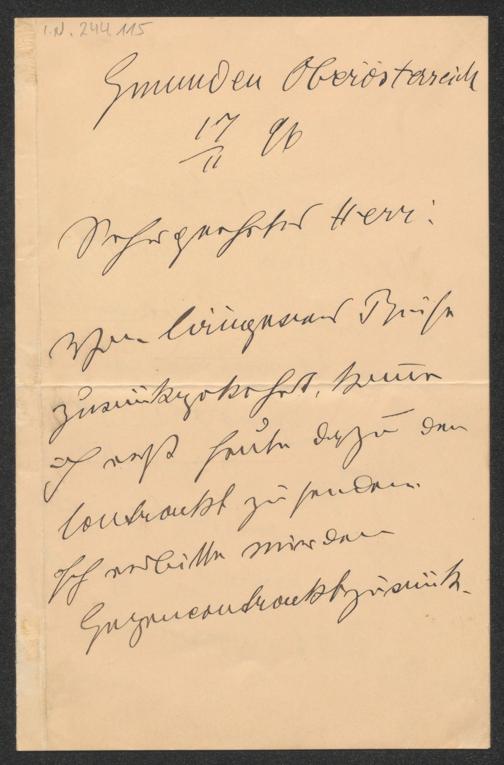 I.N. 244.115
Gmunden Oberösterreich
17/II 96
Sehr geehrter Herr:
Von längerer Reise
zurückgekehrt, komme
ich erst heute dazu den
Contrackt zu senden.
Ich erbitte mir den
Gegencontrackt zurück.